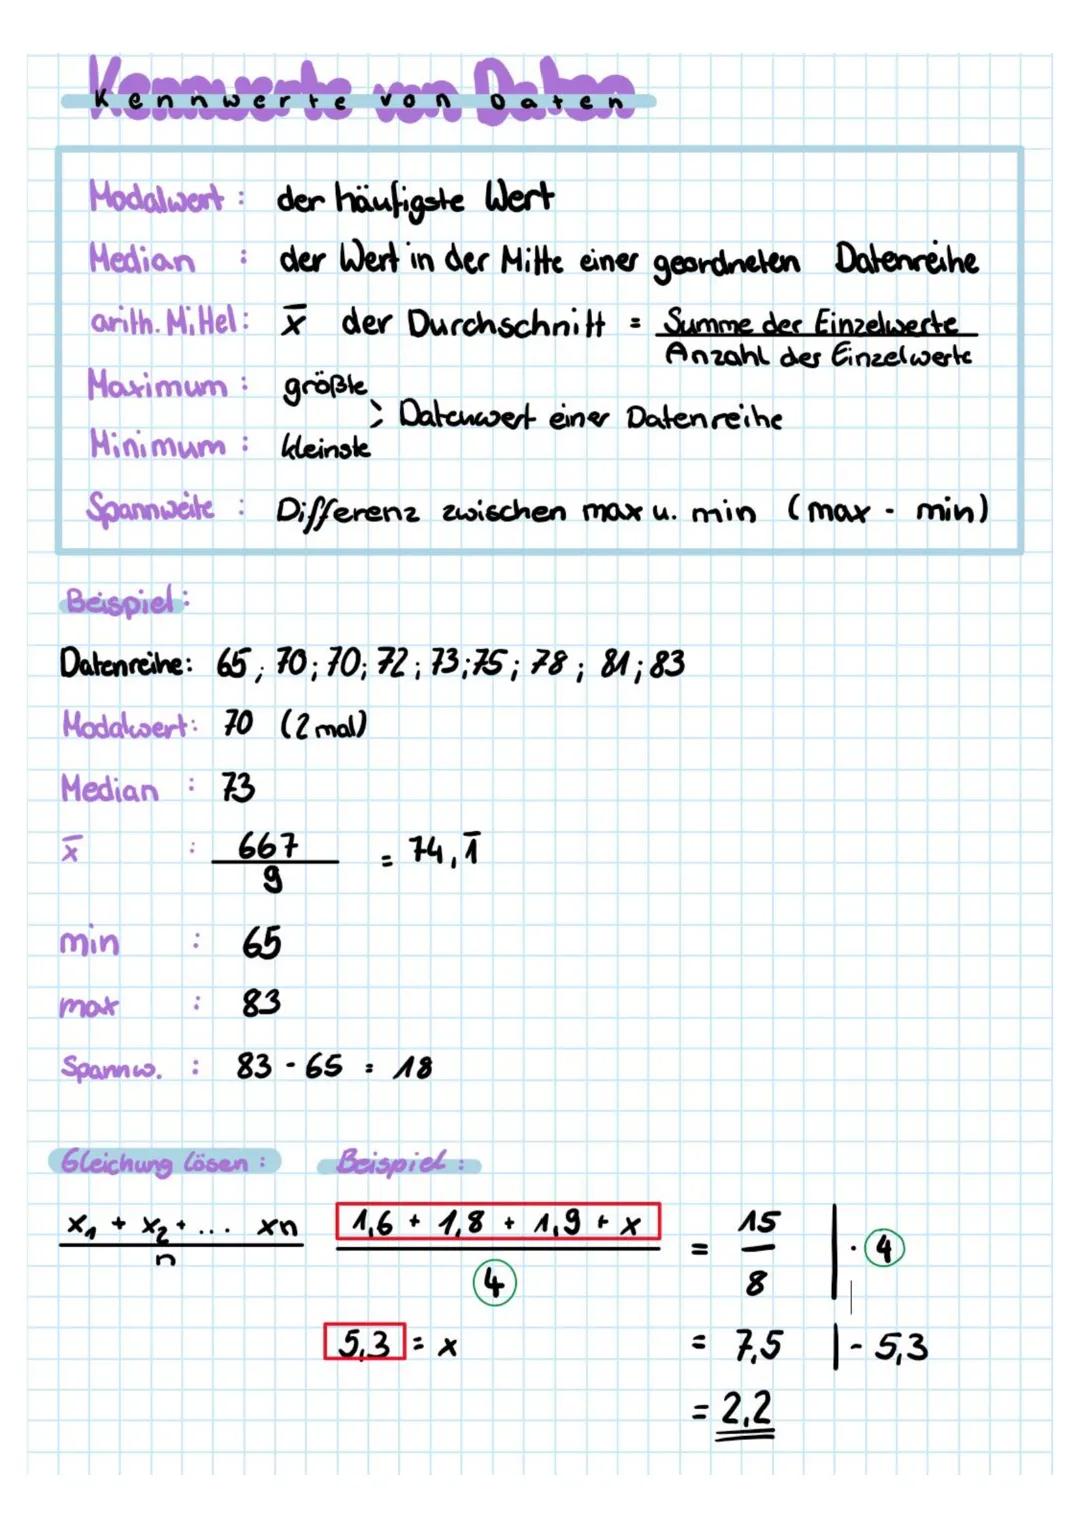 Kennwerte von Daten
Modalwert: der häufigste Wert
Median : der Wert in der Mitte einer geordneten Datenreihe
arith. Mittel: x̄ der Durchschnitt = Summe der Einzelwerte
Anzahl der Einzelwerte
Maximum: größte
> Datenwert einer Datenreihe
Minimum: kleinste
Spannweite: Differenz zwischen max u. min (max - min)
Beispiel:
Datenreihe: 65; 70; 70; 72; 73; 75; 78; 81; 83
Modalwert: 70 (2 mal)
Median : 73
x̄ : 667/9 = 74,1̄
min : 65
max : 83
Spannw. : 83 - 65 = 18
Gleichung lösen: Beispiel:
x₁ + x₂ + ... xn / n
1,6 + 1,8 + 1,9 + x / 4 = 15/8 | · 4
5,3 = x = 7,5 | - 5,3
= 2,2